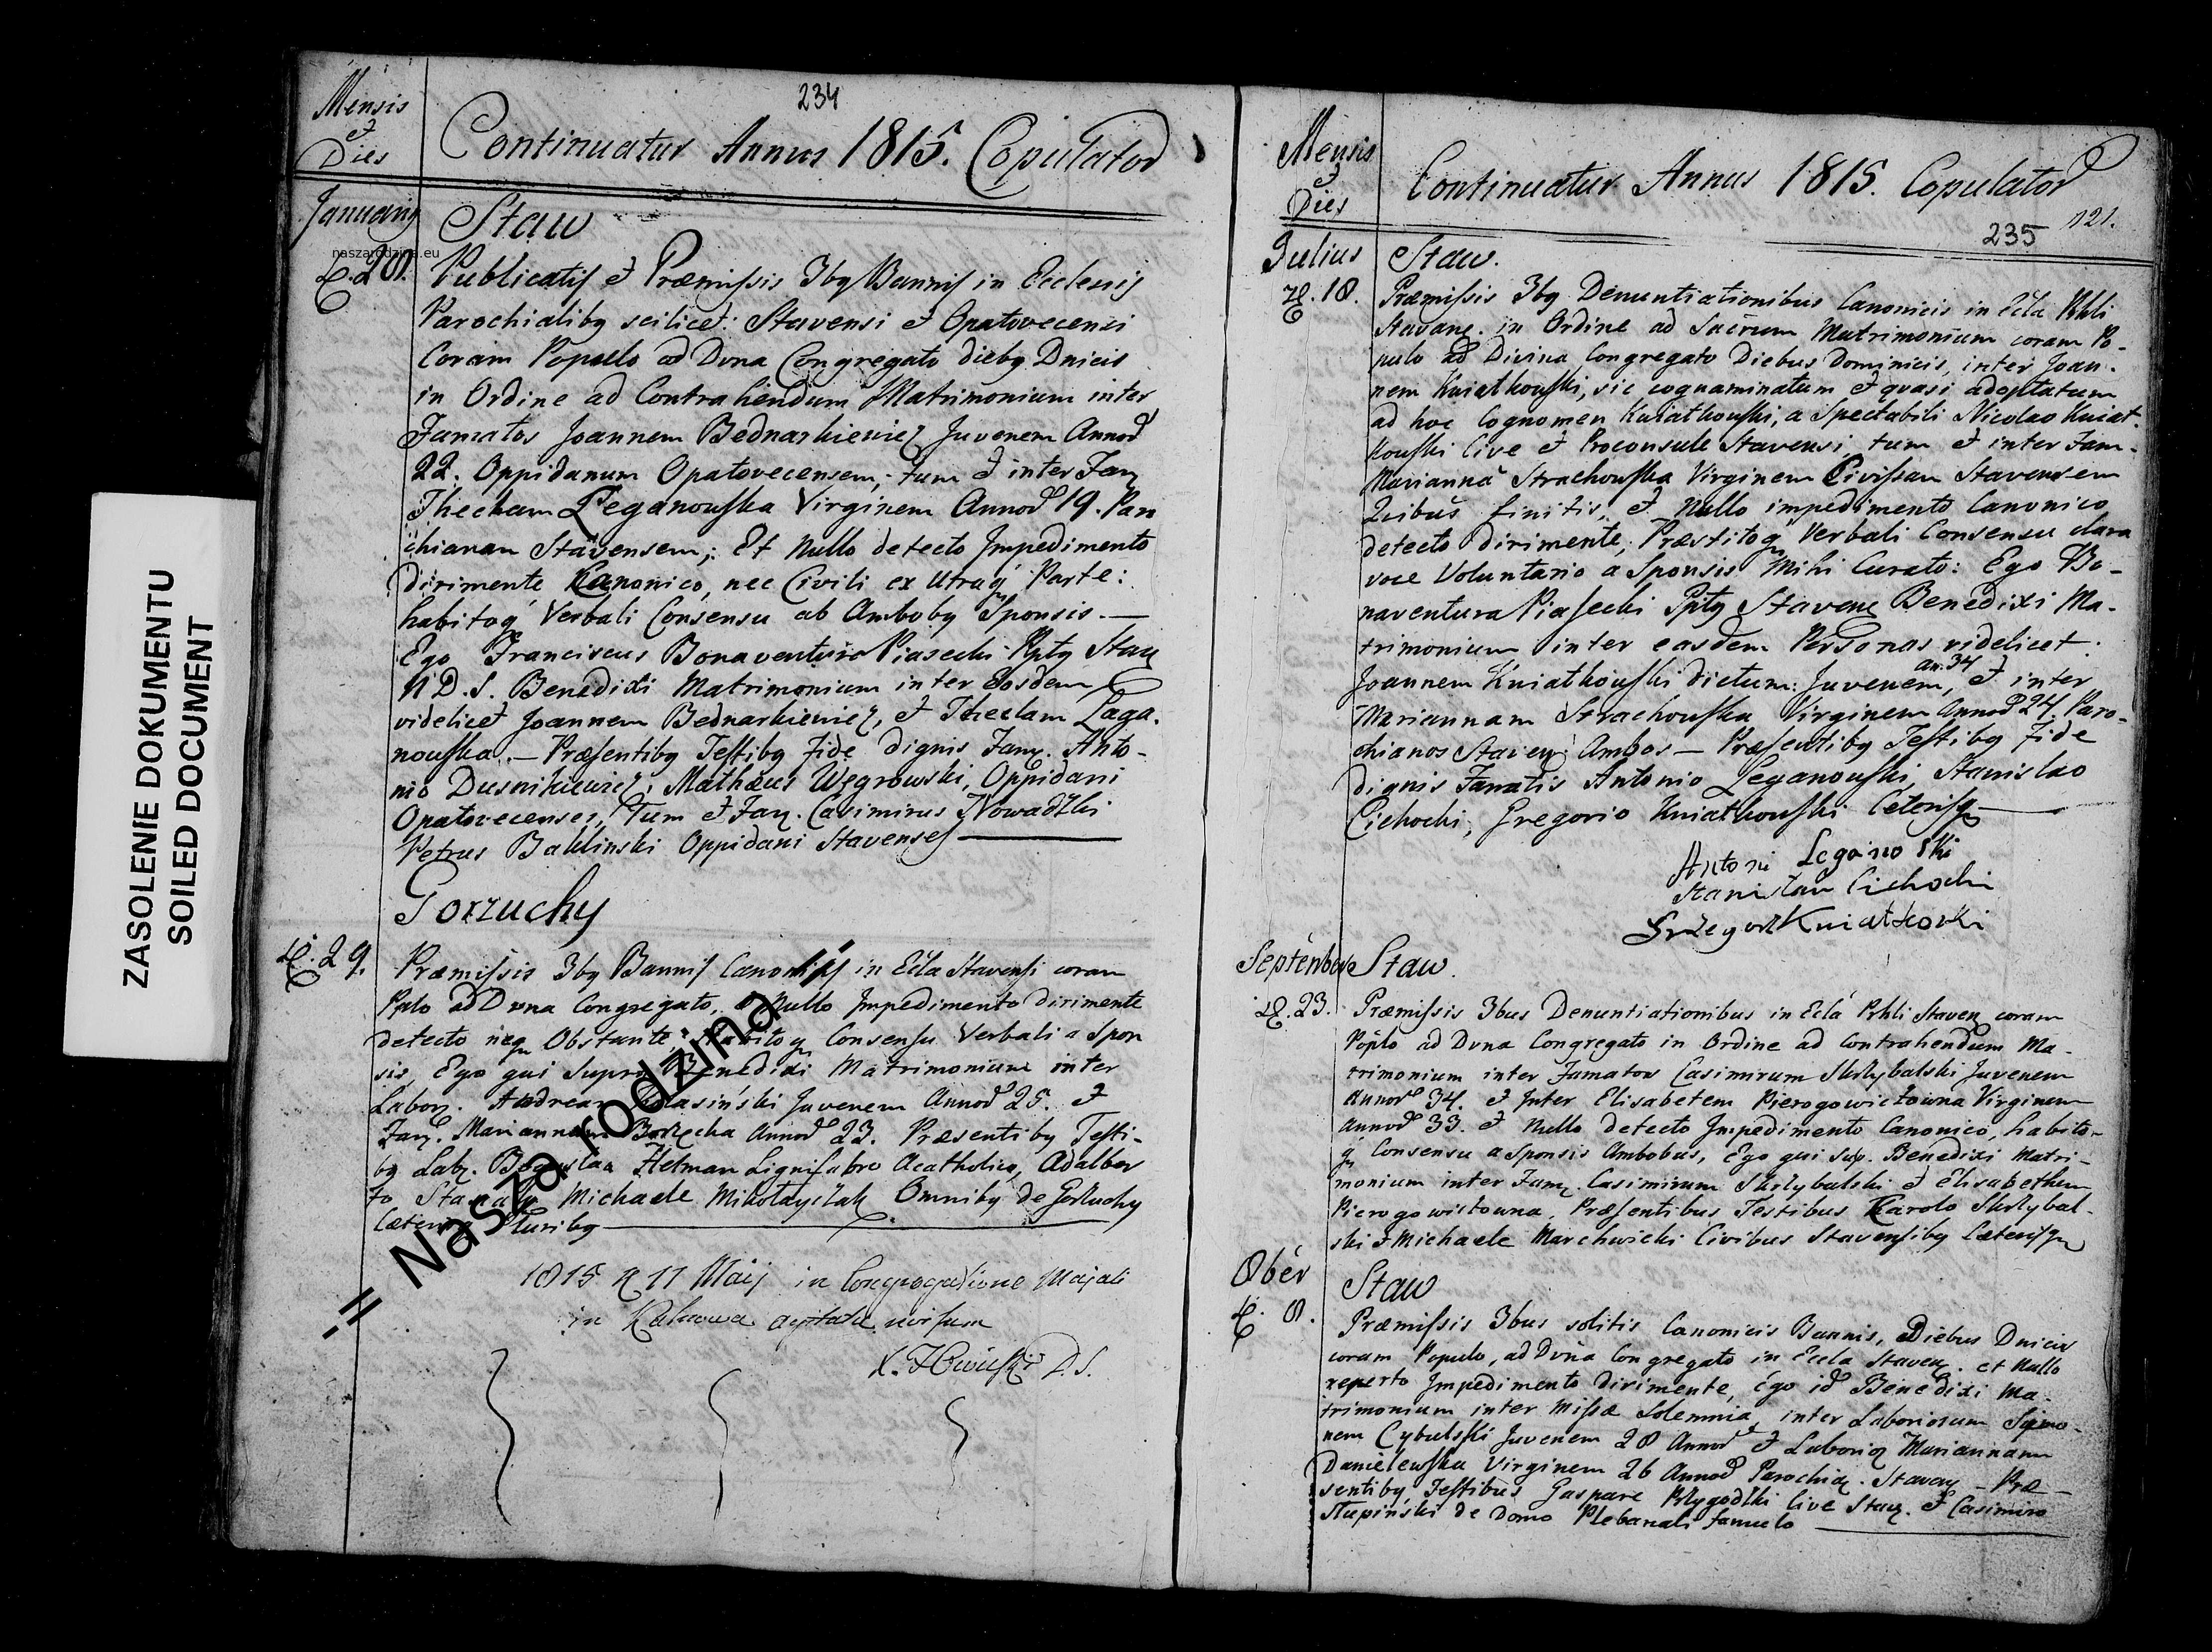 ZASOLENIE DOKUMENTU
SOILED DOCUMENT
234
Mensis
et
Dies
Continuatur Annus 1815. Copulator
Januarij
Staw
naszarodzina.eu
D. 20.
Publicatis et Præmissis 3bg Bannis in Ecclesijs
Parochialibg scilicet: Stavensi et Opatovecensi
Coram Populo ad Dvna Congregato diebg Dnicis
in Ordine ad Contrahendum Matrimonium inter
Famatos Joannem Bednarkiewicz Juvenem Annoꝝ
22. Oppidanum Opatovecensem, tum et inter Fam
Theclam Leganowska Virginem Annoꝝ 19. Paro
chianam Stavensem; Et Nullo detecto Impedimento
dirimente Kanonico, nec Civili ex Utraq Parte:
habitoq Verbali Consensu ab Ambobg Sponsis. —
Ego Franciscus Bonaventura Piasecki Ppts Stav
N D. S. Benedixi Matrimonium inter Eosdem
videlicet Joannem Bednarkiewicz, et Theclam Laga-
nowska. — Præsentibg Testibg fide dignis Fam. Anto-
nio Dusnikiewicz, Mathæus Węgrowski, Oppidani
Opatovecenses, Tum et Fam. Casimirus Nowadzki
Petrus Baklinski Oppidani Stavenses
Gorzuchy
D. 29.
Præmissis 3bg Bannis Canonicis in Ecla Stavensi coram
Pplo ad Dvna Congregato, et Nullo Impedimento dirimente
detecto neq Obstante, habitoq Consensu Verbali a Spon
sis, Ego qui Supra Benedixi Matrimonium inter
Labor. Andream Juvenem Annoꝝ 25. et
Fam. Mariannam Annoꝝ 23. Præsentibg Testi-
bg Lab. Hetman Lignifabro Acatholico, Adalber
to Michaele Mikołayczak Omnibg de Gorzuchy
Pluribg
-=Nasza rodzina
1815 D 11 Maij in Congregatione Majali
in Kalinowa agitata visum
D. S.
Mensis
et
Dies
Continuatur Annus 1815. Copulatoꝝ
235 121.
Julius
Staw.
D. 18.
Præmissis 3bg Denuntiationibus Canonicis in Ecla Pkli
Stavane. in Ordine ad Sacrum Matrimonium coram Po-
pulo ad Divina Congregato Diebus Dominicis, inter Joan-
nem Kwiatkowski, sic cognaminatum et quasi adoptatum
ad hoc Cognomen Kwiatkowski, a Spectabili Nicolao Kwiat-
kowski Cive et Proconsule Stavensi, tum et inter Fam-
Marianna Strachowska Virginem Civissam Stavensem
Quibus finitis, et Nullo impedimento Canonico
detecto dirimente, Præstitoq Verbali Consensu clara
voce Voluntario a Sponsis Mihi Curato: Ego Bo-
naventura Piasecki Ppts Staven Benedixi Ma-
trimonium inter easdem Personas videlicet:
Joannem Kwiatkowski dictum: Juvenem, an. 34 et inter
Mariannam Strachowska Virginem Annoꝝ 24 Paro-
chianos Staven Ambos — Præsentibg Testibg Fide
dignis Famatis Antonio Leganowski, Stanislao
Cichocki, Gregorio Kwiatkowski Ceterisq
Antoni Leganoski
Stanisław Cichocki
Grzegorz Kwiatkoski
September
Staw.
D. 23.
Præmissis 3bus Denuntiationibus in Ecla Pkli Staven coram
Poplo ad Dvna Congregato in Ordine ad contrahendum Ma-
trimonium inter Famatos Casimirum Skrzybalski Juvenem
Annoꝝ 34. et Inter Elisabetem Pierogowiczowna Virginem
annoꝝ 33. et Nullo detecto Impedimento Canonico, habito-
q Consensu a Sponsis Ambobus, Ego qui sup. Benedixi Matri-
monium inter Fam. Casimirum Skrzybalski et Elisabethem
Pierogowiczowna, Præsentibus Testibus Karolo Skrzybal-
ski et Michaele Marchwicki Civibus Stavensibg Cæterisq
8bér
Staw
D. 8.
Præmissis 3bus solitis Canonicis Bannis, Diebus Dnicis
coram Populo, ad Dvna Congregato in Eccla Staven. et Nullo
reperto Impedimento dirimente, Ego id Benedixi Ma-
trimonium inter Missæ Solemnia, inter Laboriosum Symo-
nem Cybulski Juvenem 28 Annoꝝ et Laborio Mariannam
Danielewska Virginem 26 Annoꝝ Parochia. Staven — Præ-
sentibg Testibus Gaspare Przygodzki Cive Stav. et Casimiro
Stupiński de Domo Plebanali famulo